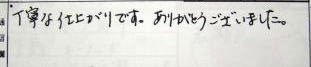 丁寧な仕上がりです。ありがとうございました。